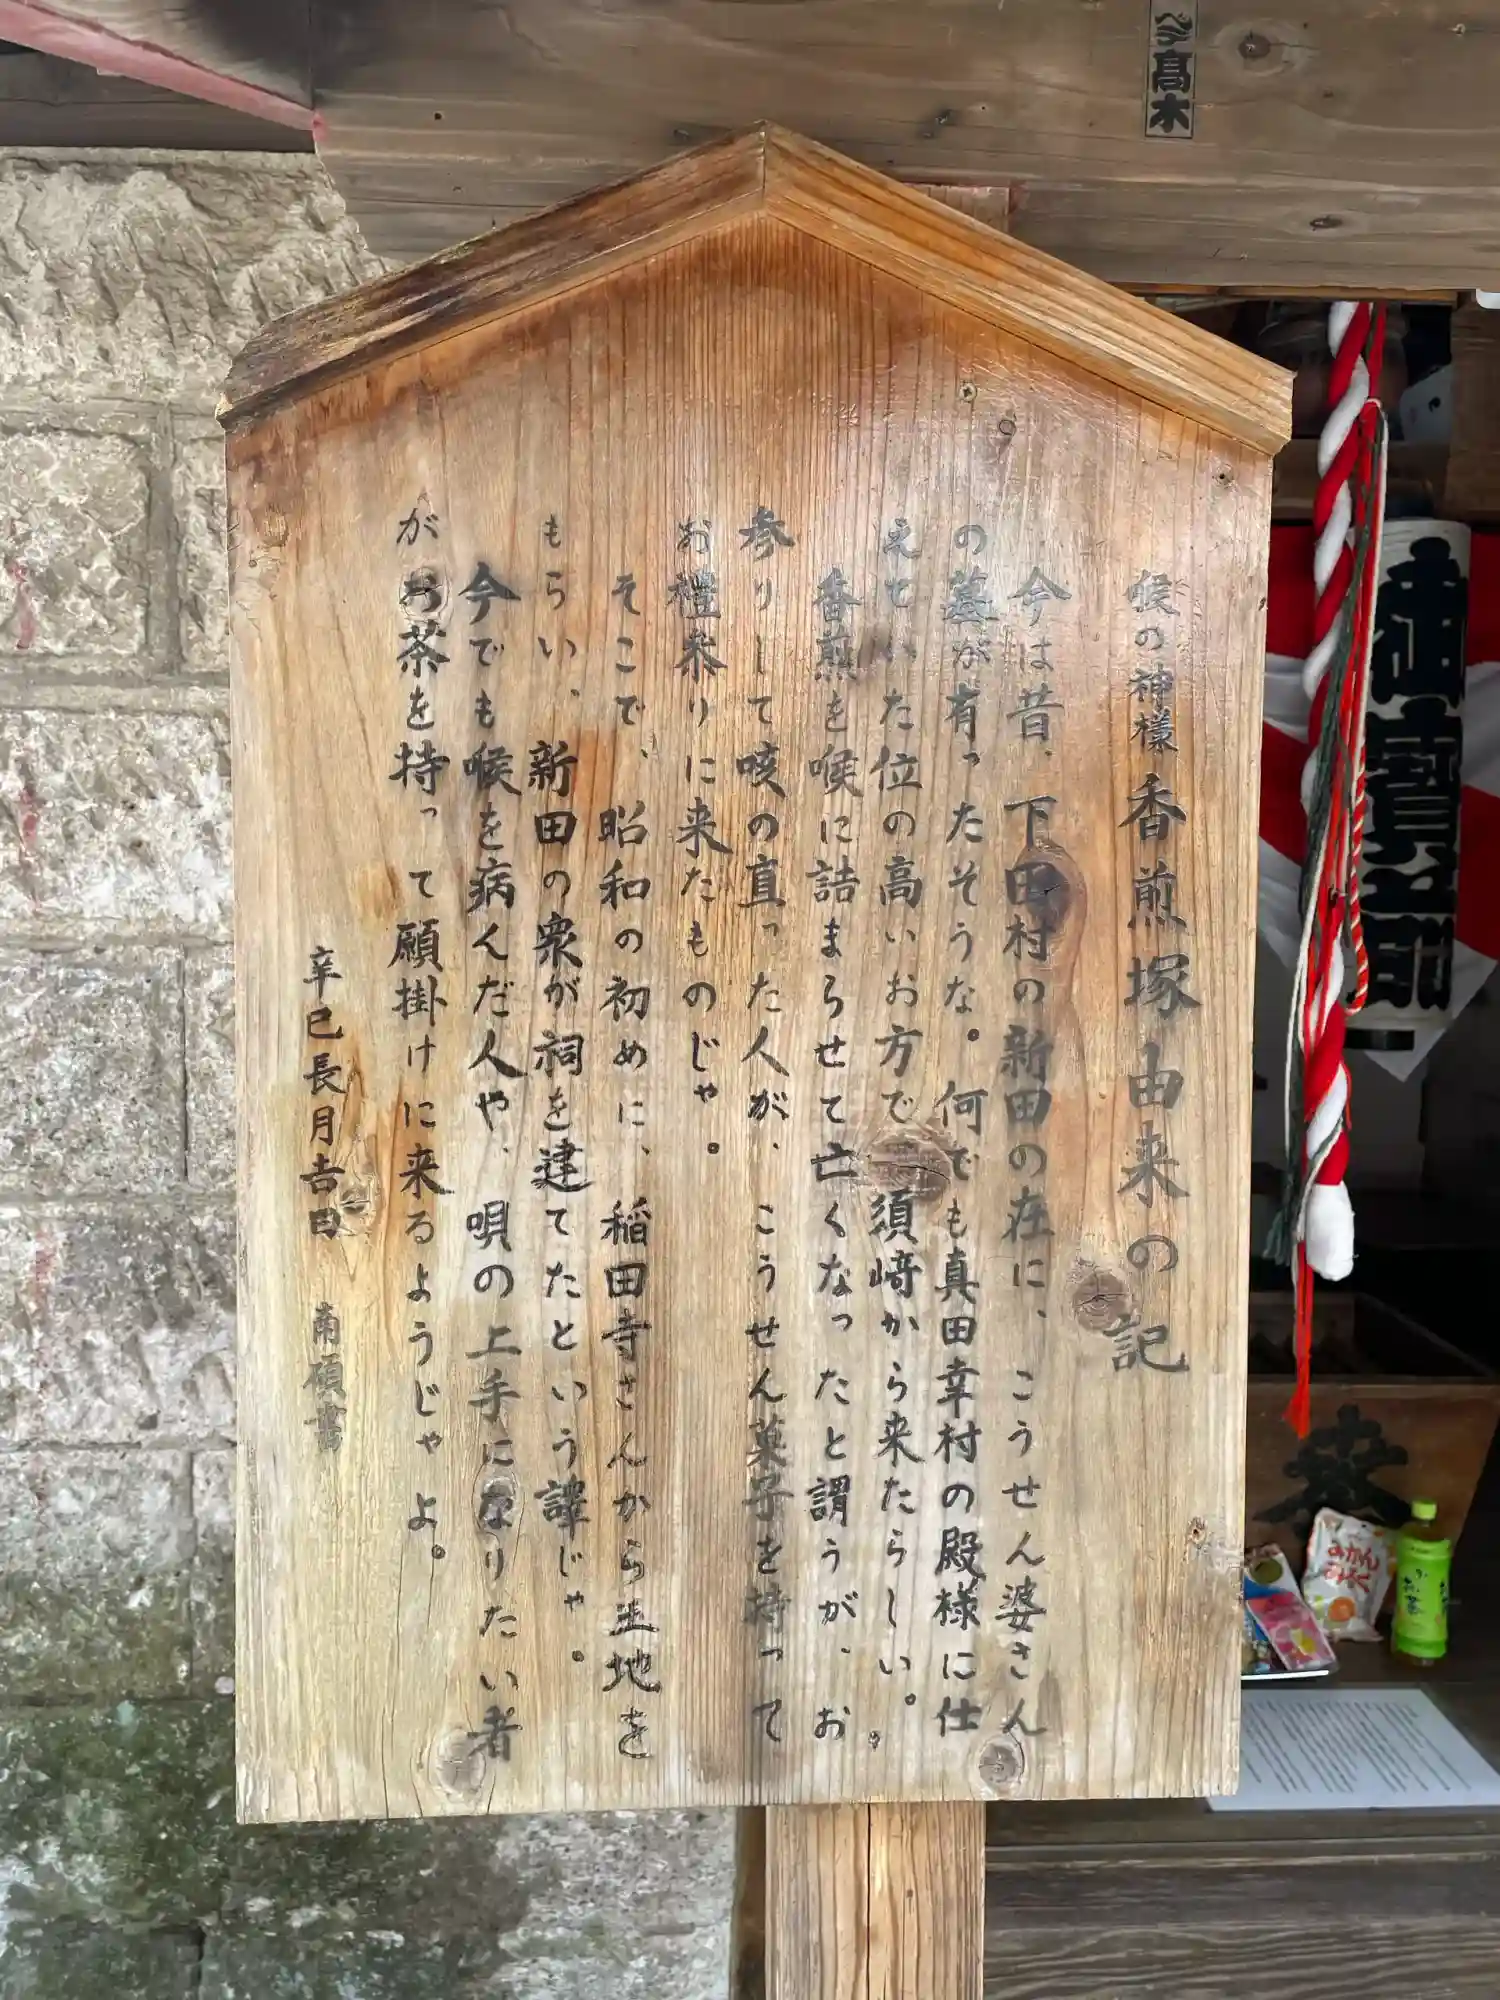 喉の神様 香煎塚由来の記
今は昔、下田村の新田の在に、こうせん婆さん
の墓が有ったそうな。何でも真田幸村の殿様に仕
えていた位の高いお方で、須﨑から来たらしい。
香煎を喉に詰まらせて亡くなったと謂うが、お
参りして咳の直った人が、こうせん菓子を持って
お禮参りに来たものじゃ。
そこで、昭和の初めに、稲田寺さんから土地を
もらい、新田の衆が祠を建てたという譯じゃ。
今でも喉を病んだ人や、唄の上手になりたい者
がお茶を持って願掛けに来るようじゃよ。
辛巳長月吉日 南碩書
髙木
御寳前
奉
みかん
お茶